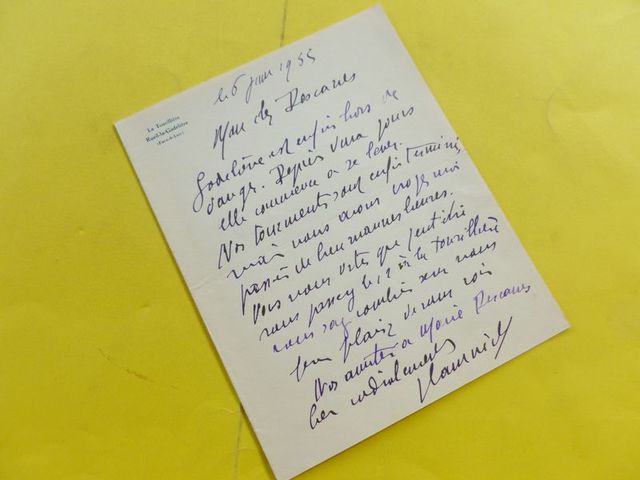 La Tourillière
Rueil-la-Gadelière
(Eure-et-Loir)
le 6 juin 1955
Mon cher Rescanes
Godelière est enfin hors de
danger. Depuis deux jours
elle commence à se lever.
Nos tourments sont enfin terminés
mais nous avons
passés de bien mauvaises heures.
Vous nous dites que peut être
vous passez le 12 à la Tourillière
vous nous
plaisir de vous voir
Nos amitiés à Marie Rescanes
bien cordialement
Vlaminck